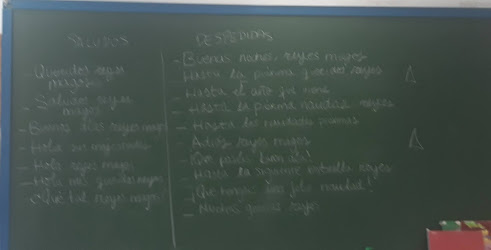 SALUDOS
- Queridos reyes
magos
- Saludos reyes
magos
- Buenos días reyes magos
- Hola sus majestades
- Hola reyes magos
- Hola mis queridos reyes
- ¿Qué tal reyes magos?
DESPEDIDAS
- Buenas noches, reyes magos
- Hasta la próxima queridos reyes
- Hasta el año que viene
- Hasta la próxima navidad reyes
- Hasta las navidades próximas
- Adios reyes magos
- ¡Que paséis buen día!
- Hasta la siguiente estrella reyes
- ¡Que tengáis una feliz navidad!
- Muchas gracias reyes